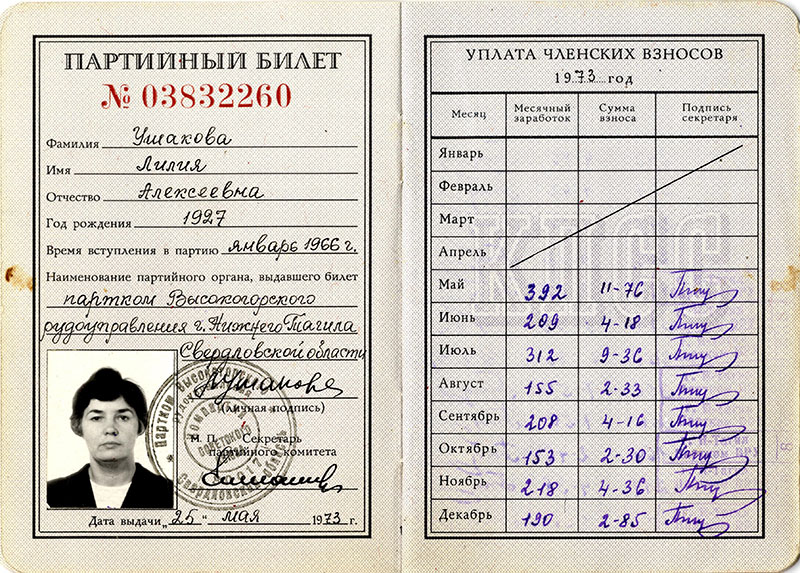 ПАРТИЙНЫЙ БИЛЕТ
№ 03832260
Фамилия Ушакова
Имя Лилия
Отчество Алексеевна
Год рождения 1927
Время вступления в партию январь 1966 г.
Наименование партийного органа, выдавшего билет
партком Высокогорского
рудоуправления г. Нижнего Тагила
Свердловской области
(личная подпись)
М. П. Секретарь
партийного комитета
Дата выдачи „25" мая 1973 г.
УПЛАТА ЧЛЕНСКИХ ВЗНОСОВ
1973 год
Месяц Месячный заработок Сумма взноса Подпись секретаря
Январь
Февраль
Март
Апрель
Май 392 11-76
Июнь 209 4-18
Июль 312 9-36
Август 155 2-33
Сентябрь 208 4-16
Октябрь 153 2-30
Ноябрь 218 4-36
Декабрь 190 2-85
КПСС